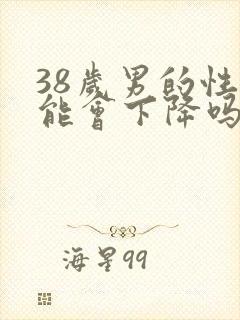 38歲男的性
能會下降吗
海星99